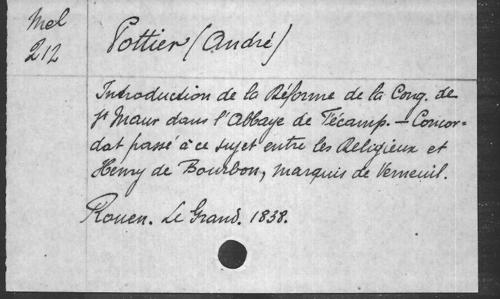 Mel
212
Pottier (André)
Introduction de la Réforme de la Cong. de
St Maur dans l'Abbaye de Fécamp. — Concor-
dat passé à ce sujet entre les Religieux et
Henry de Bourbon, marquis de Verneuil.
Rouen. Le Grand. 1838.